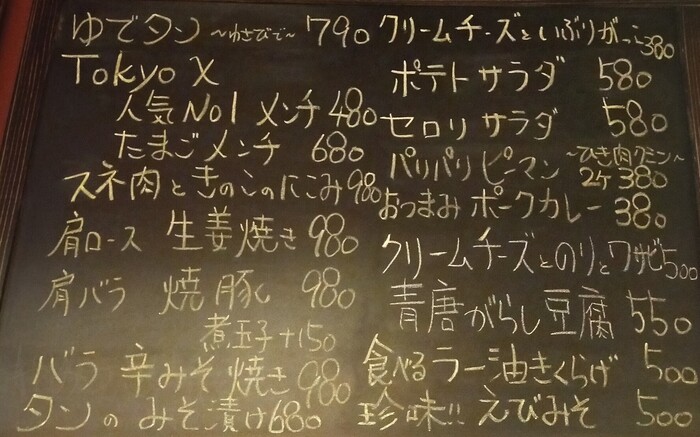 ゆでタン ~わさびで~ 790
Tokyo X
人気No1 メンチ 480
たまごメンチ 680
スネ肉ときのこのにこみ 980
肩ロース 生姜焼き 980
肩バラ 焼豚 980
煮玉子+150
バラ 辛みそ焼き 980
タンのみそ漬け 680
クリームチーズといぶりがっこ 380
ポテトサラダ 580
セロリサラダ 580
パリパリピーマン ~ひき肉クミン~ 2ケ 380
おつまみポークカレー 380
クリームチーズとのりとワサビ 500
青唐がらし豆腐 550
食べるラー油きくらげ 500
珍味!! えびみそ 500